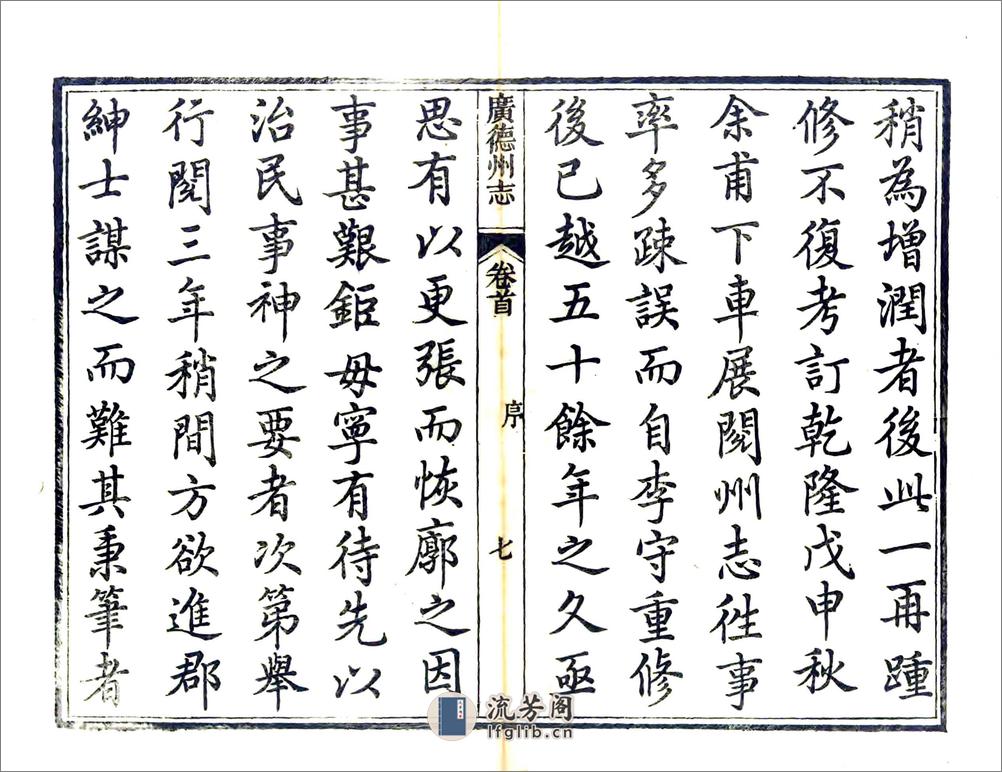 稍為增潤者後此一再踵
修不復考訂乾隆戊申秋
余甫下車展閱州志徃事
率多疎誤而自李守重修
後已越五十餘年之久亟
廣德州志
卷首
序
七
思有以更張而恢廓之因
事甚艱鉅毋寧有待先以
治民事神之要者次第舉
行閱三年稍間方欲進郡
紳士謀之而難其秉筆者
流芳阁
lfglib.cn